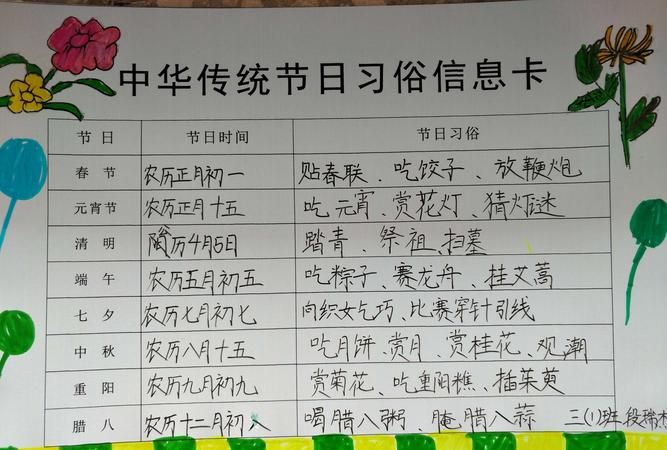 中华传统节日习俗信息卡
节日 节日时间 节日习俗
春节 农历正月初一 贴春联、吃饺子、放鞭炮
元宵节 农历正月十五 吃元宵、赏花灯、猜灯谜
清明 阳历4月5日 踏青、祭祖、扫墓
端午 农历五月初五 吃粽子、赛龙舟、挂艾蒿
七夕 农历七月初七 向织女乞巧、比赛穿针引线
中秋 农历八月十五 吃月饼、赏月、赏桂花、观潮
重阳 农历九月初九 赏菊花、吃重阳糕、插茱萸
腊八 农历十二月初八 喝腊八粥、腌腊八蒜
三(1)班、段瑞杰